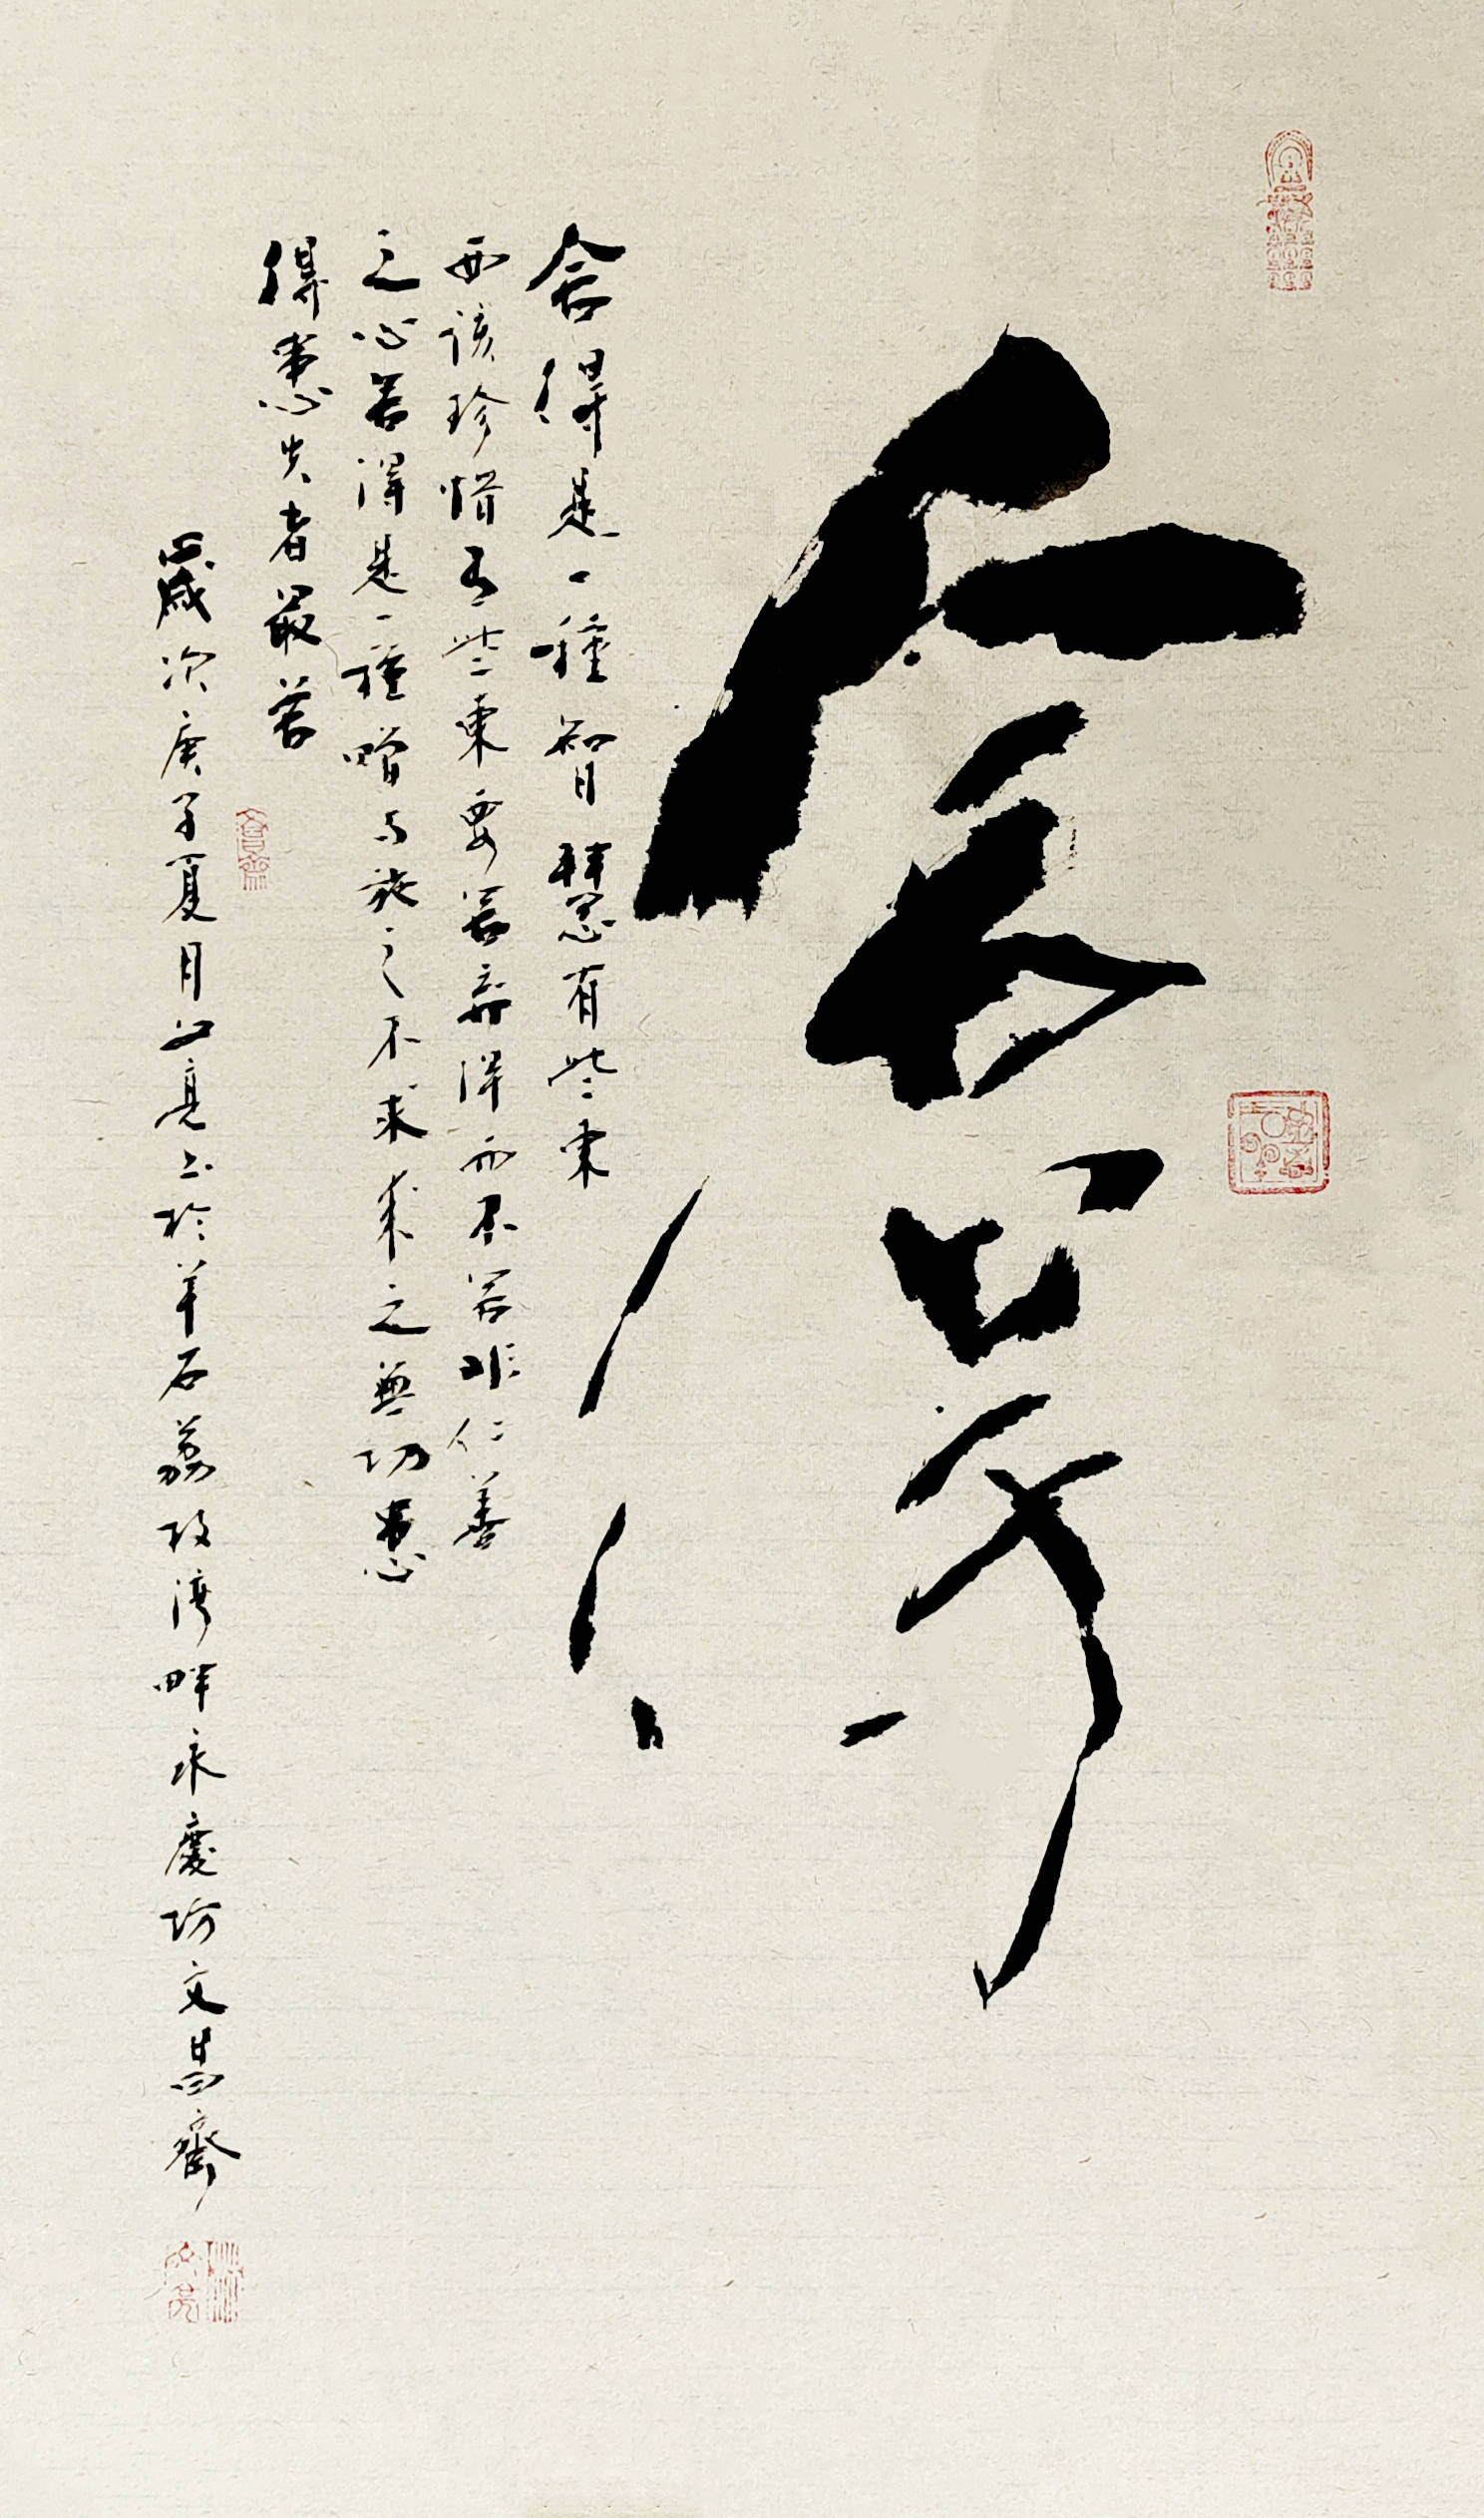 舍得
舍得是一種智慧有些東
西該珍惜有些東要舍棄得而不舍非仁善
之心舍得是一種贈與施之不求求之無功患
得患失者最苦
歲次庚子夏月亮书於羊石荔枝湾畔永慶坊文昌齋